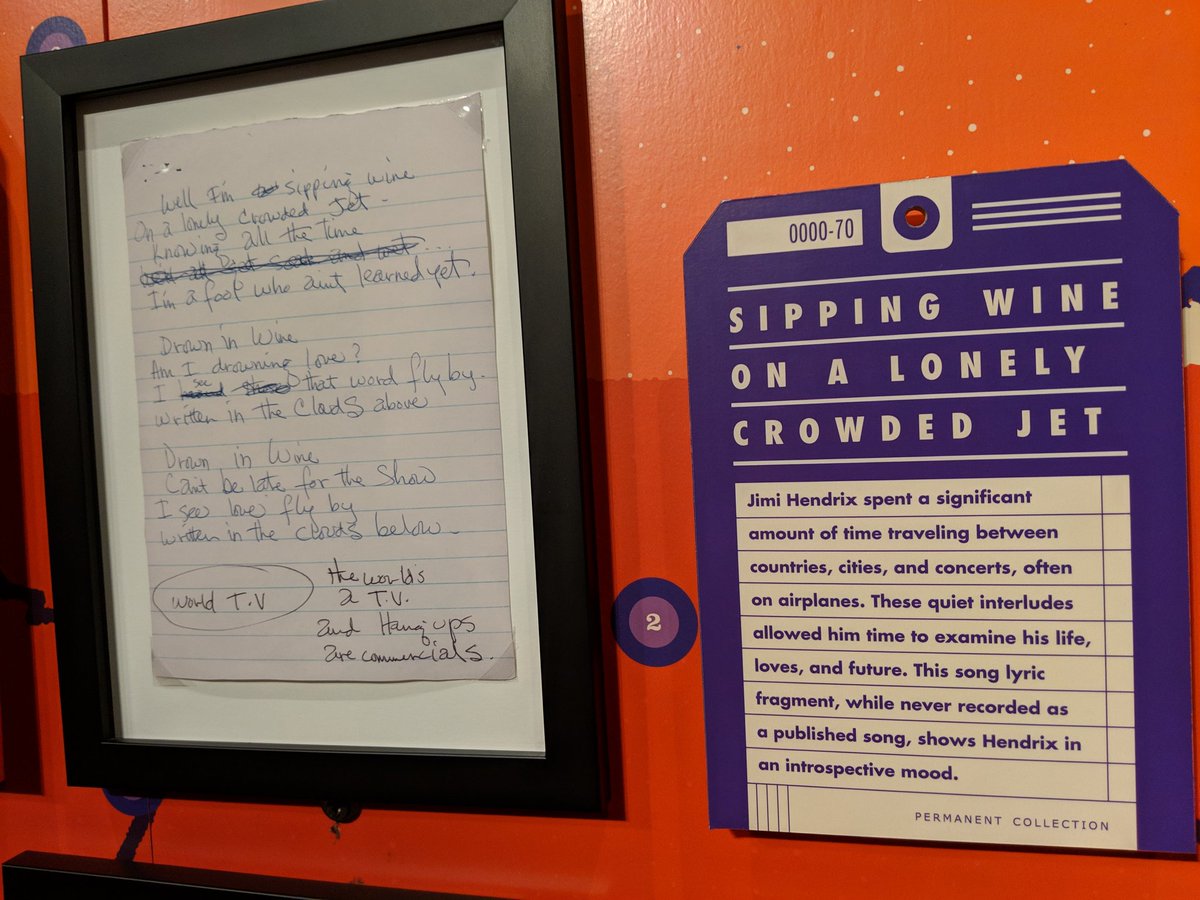 Well I'm sipping wine
On a lonely crowded Jet -
Knowing all the time
I'm a fool who aint learned yet.
Drown in Wine
Am I drowning love?
I see that word fly by.
written in the Clouds above
Drown in Wine
Cant be late for the Show
I see love fly by
written in the Clouds below -
world T.V
the world's
a T.V.
and Hang ups
are commercials.
2
0000-70
SIPPING WINE
ON A LONELY
CROWDED JET
Jimi Hendrix spent a significant
amount of time traveling between
countries, cities, and concerts, often
on airplanes. These quiet interludes
allowed him time to examine his life,
loves, and future. This song lyric
fragment, while never recorded as
a published song, shows Hendrix in
an introspective mood.
PERMANENT COLLECTION